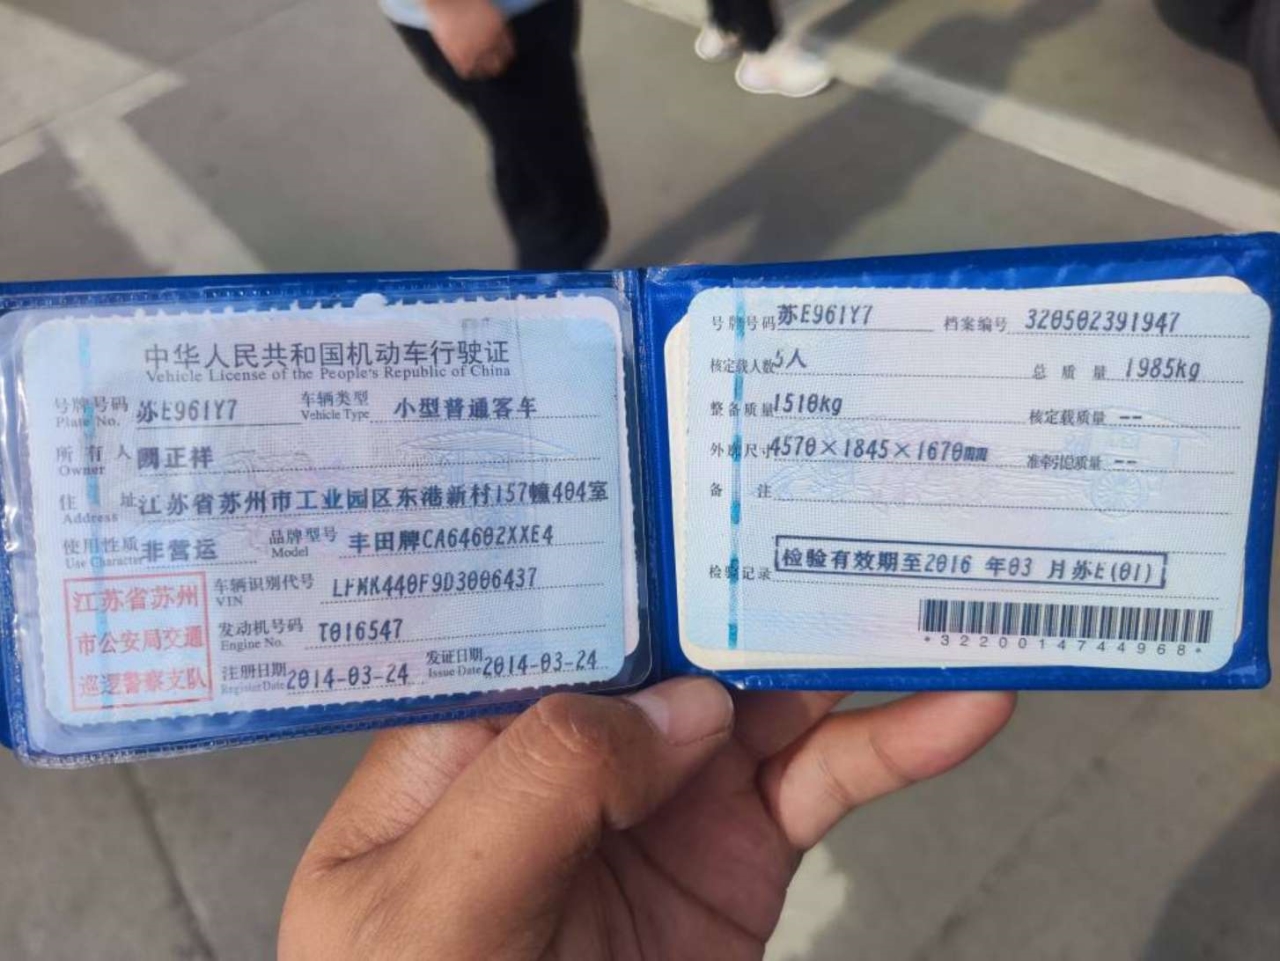 中华人民共和国机动车行驶证
Vehicle License of the People's Republic of China
号牌号码 苏E961Y7 车辆类型 小型普通客车
Plate No. Vehicle Type
所有人 阙正祥
Owner
住址 江苏省苏州市工业园区东港新村157幢404室
Address
使用性质 非营运 品牌型号 丰田牌CA64602XXE4
Use Character Model
江苏省苏州
市公安局交通
巡逻警察支队
车辆识别代号 LFMK440F9D3006437
VIN
发动机号码 T016547
Engine No.
注册日期 2014-03-24 发证日期 2014-03-24
Register Date Issue Date
号牌号码 苏E961Y7 档案编号 320502391947
核定载人数 5人 总质量 1985kg
整备质量 1510kg 核定载质量 --
外廓尺寸 4570×1845×1670㎜ 准牵引总质量 --
备注
检验记录 检验有效期至2016 年03 月苏E(01)
*3220014744968*